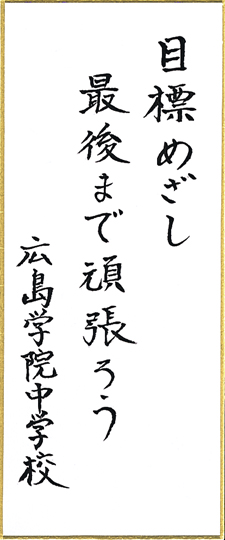 目標めざし
最後まで頑張ろう
広島学院中学校